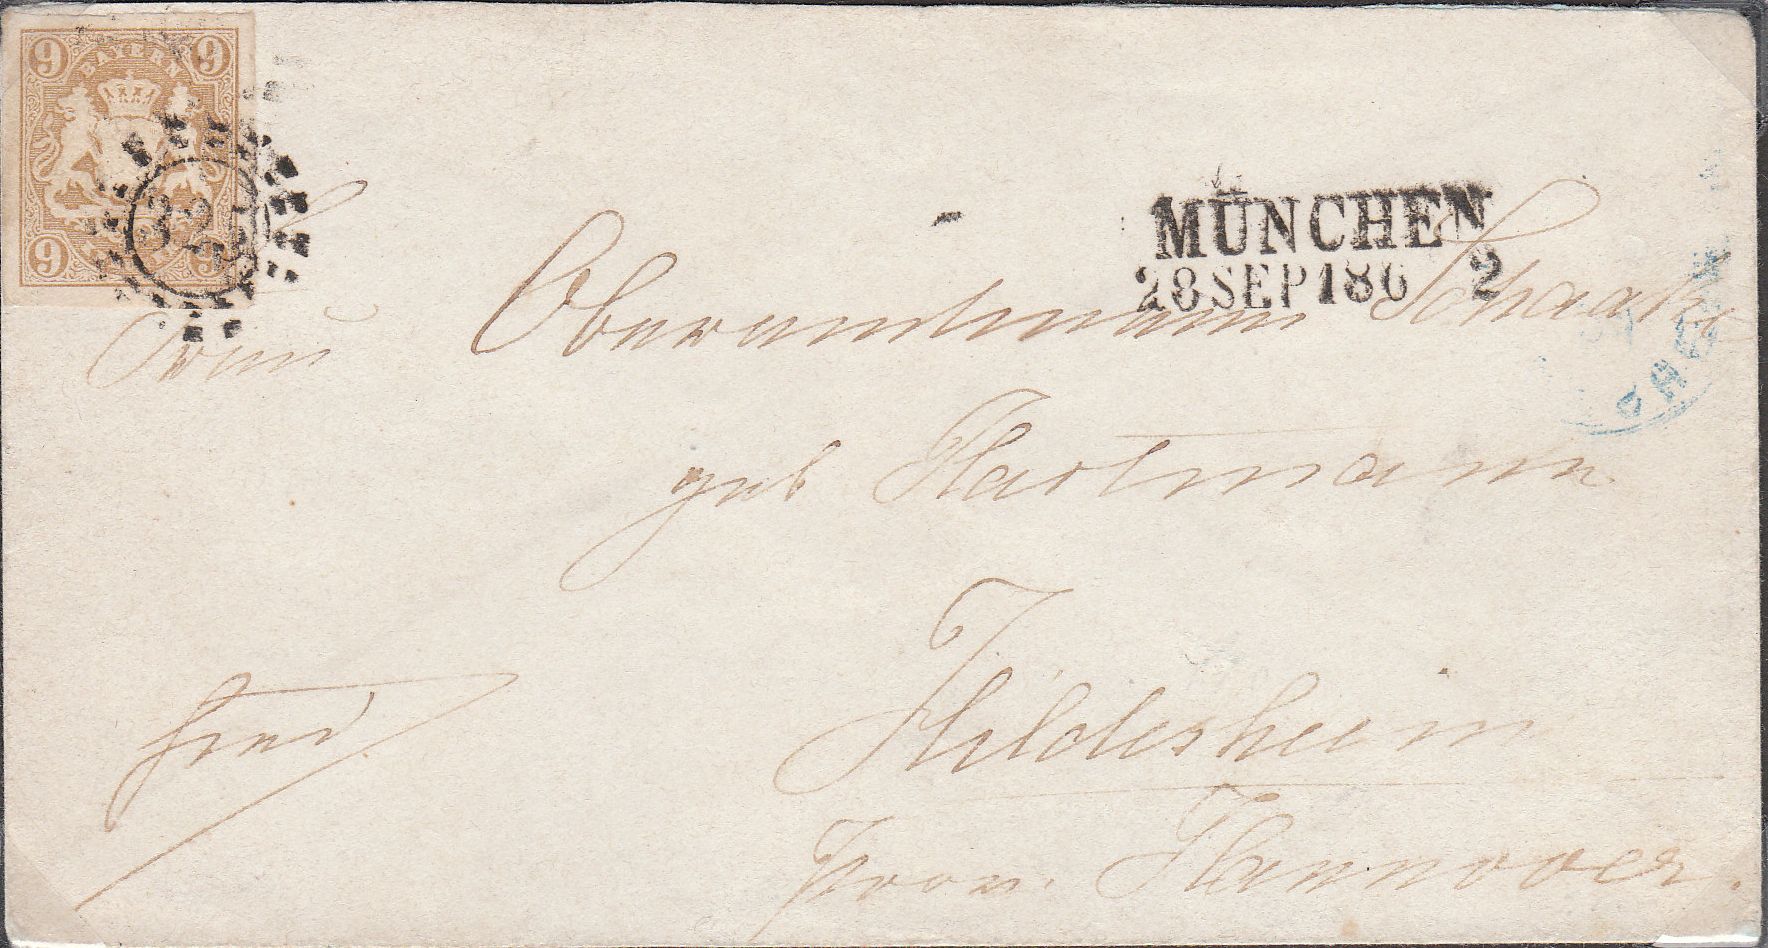 9 9
BAYERN
9 9
MÜNCHEN
28 SEP 186 2
Frau Oberamtmann Schaar
geb Hartmann
Hildesheim
frei
Prov. Hannover.